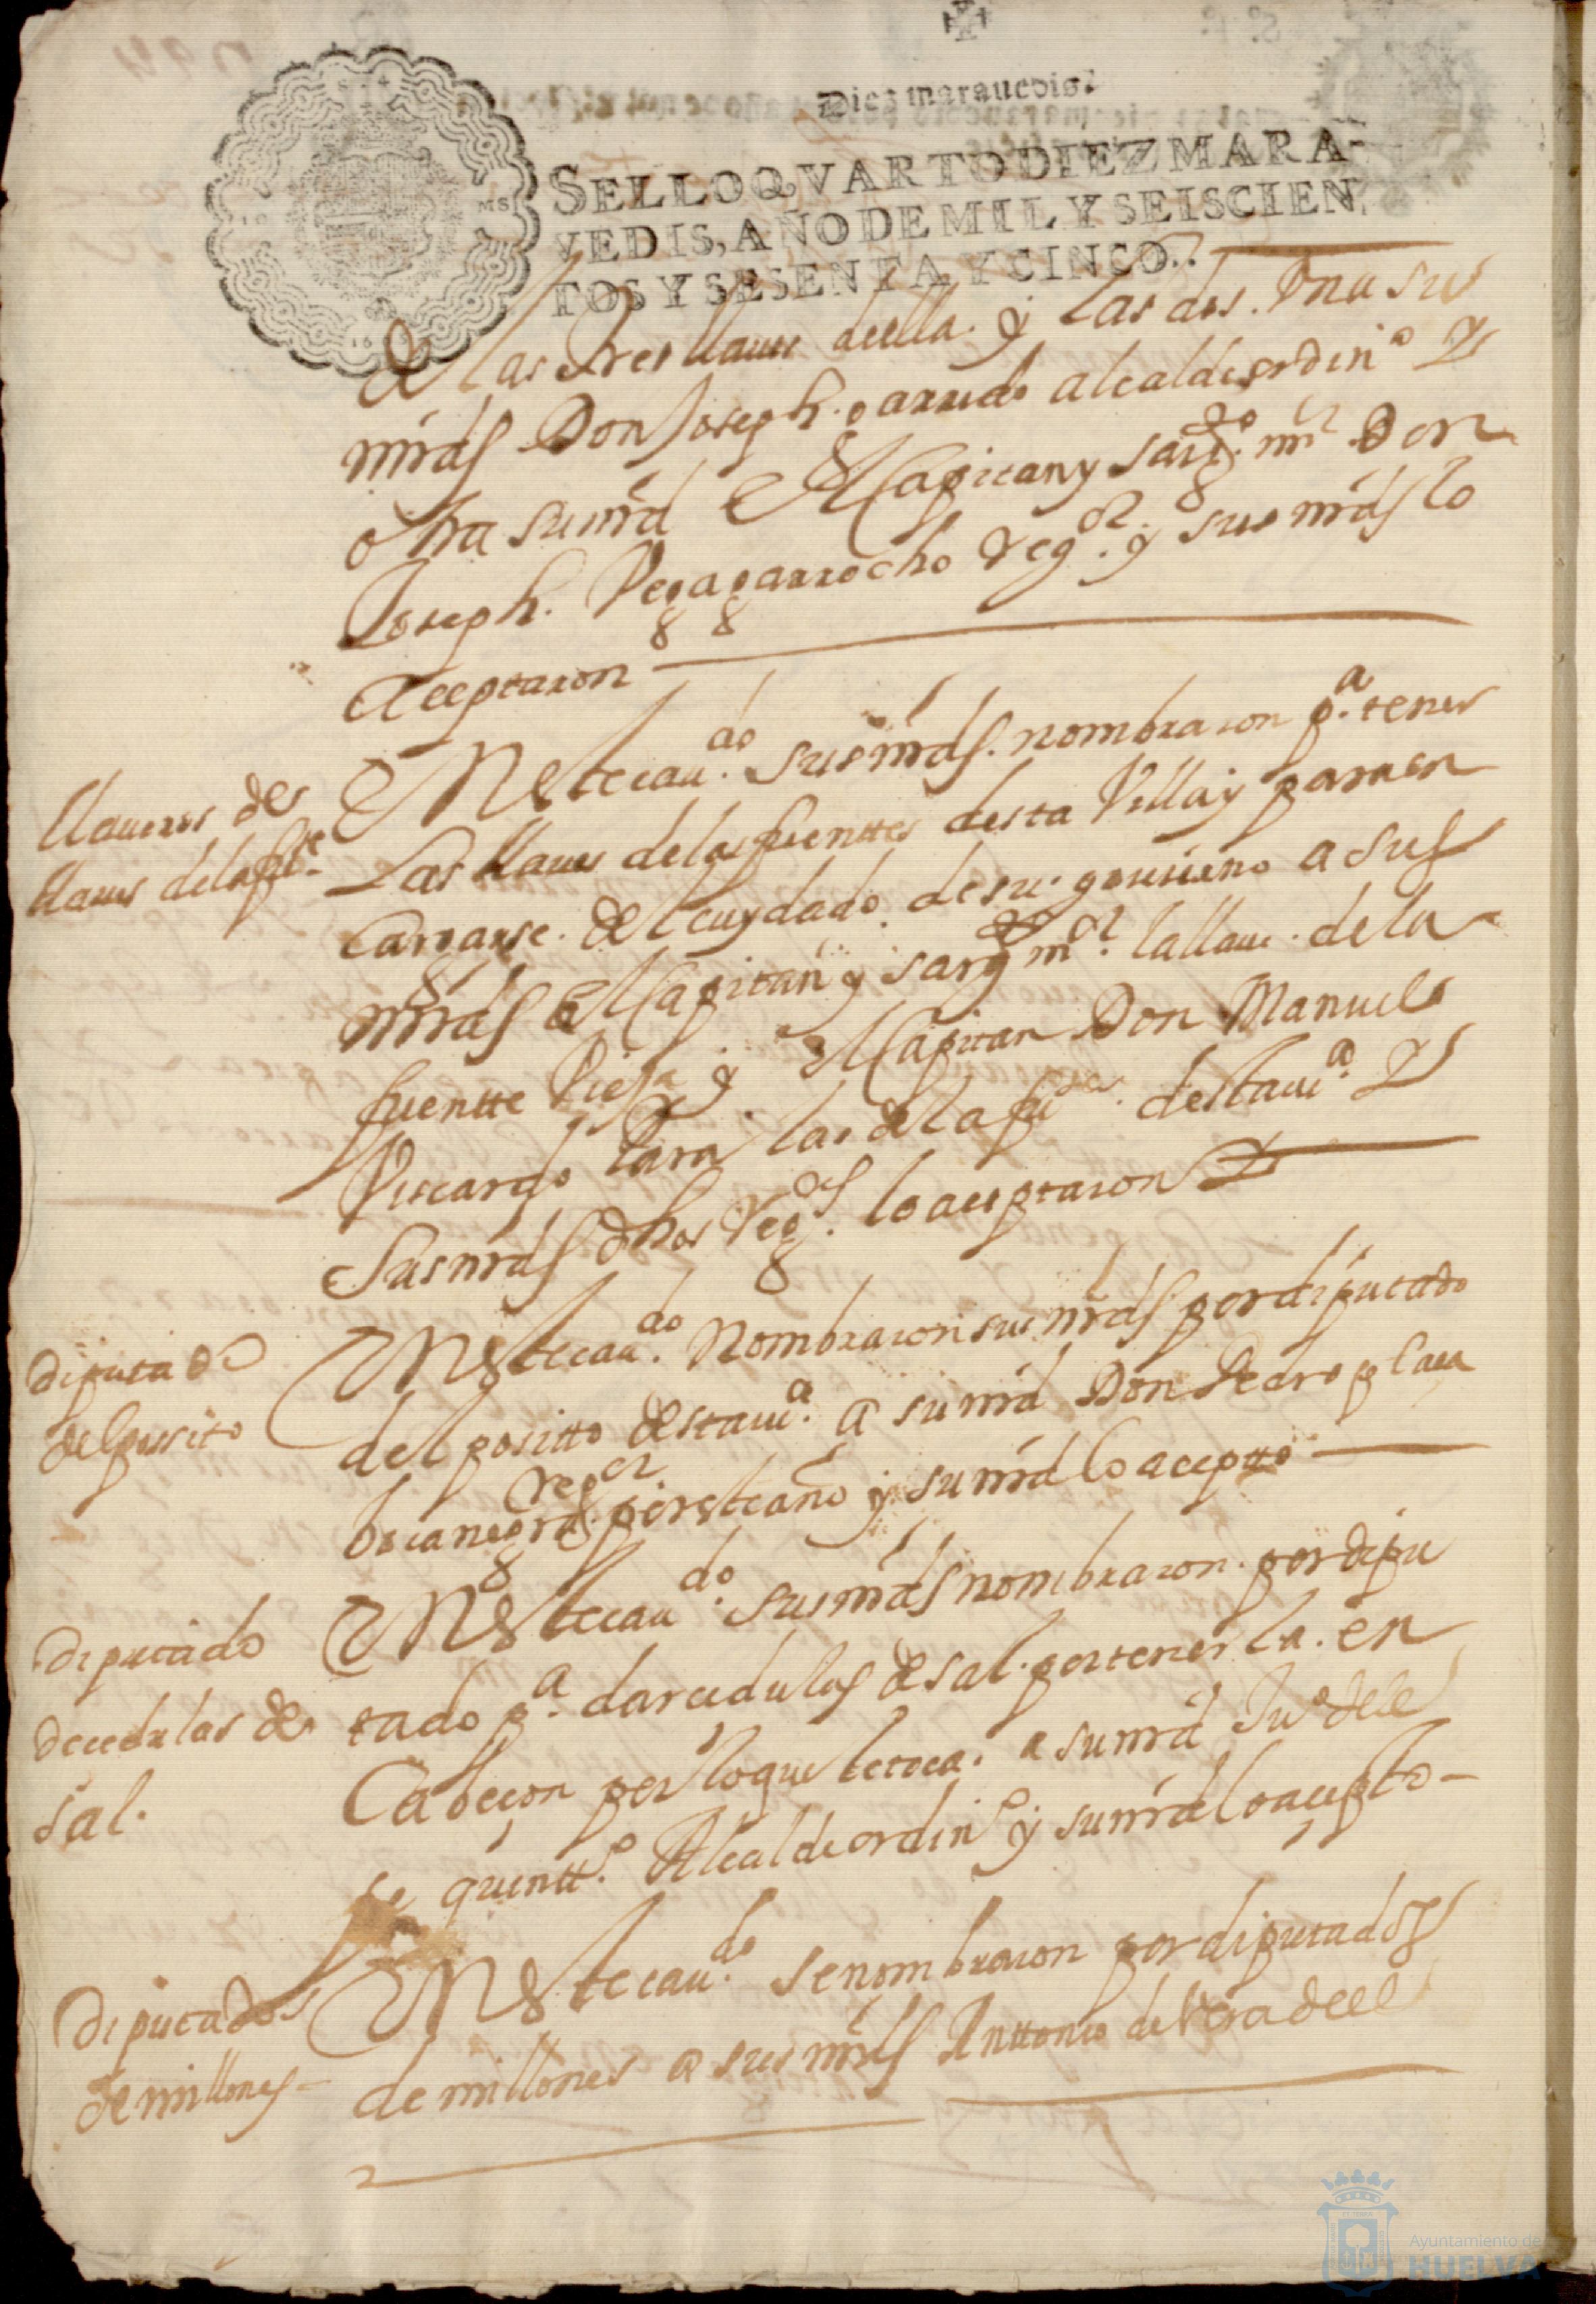 Diez marauedis.
SELLO QVARTO DIEZ MARA-
VEDIS, AÑO DE MIL Y SEISCIEN
TOS Y SESENTA Y CINCO.
de las tres llaues della. y las dos. Una su
mrds Don Joseph. garrido alcalde ordin.o
otra su mrd el Capitan y sarg.to m.or Don
Joseph. Vega garrocho Reg.or y sus mrds lo
aceptaron
llaueros de
llaues de la fu.te
En este cau.do sus mrds. nombraron p.a tener
Las llaues de las fuenttes desta Villa y para en
cargarse. del cuydado. de su. gouierno a sus
mrds el Capitan y sarg.to m.or la llaue. de la
fuentte Vieja y el Capitan Don Manuel
Viscargo Lara las de la fu.te desta ui.a
Sus mrds dhos Reg.es lo aceptaron
diputado
del posito
En este cau.do Nombraron sus mrds por diputado
del positto desta ui.a a su mrd Don Pedro plaça
bocanegra reg.or y su mrd lo aceptto
diputado
de cedulas de
sal.
En este cau.do sus mrds nombraron. por dipu
tado p.a dar cedulas de sal. por tenerla. en
Cabeçon por lo que le toca. a su mrd Ju.o
quintt.o Alcalde ordin.o y su mrd lo acepto-
Diputados
de millones-
En este cau.do se nombraron por diputados
de millones a sus mrds Anttonio de Vera
Ayuntamiento de
HUELVA